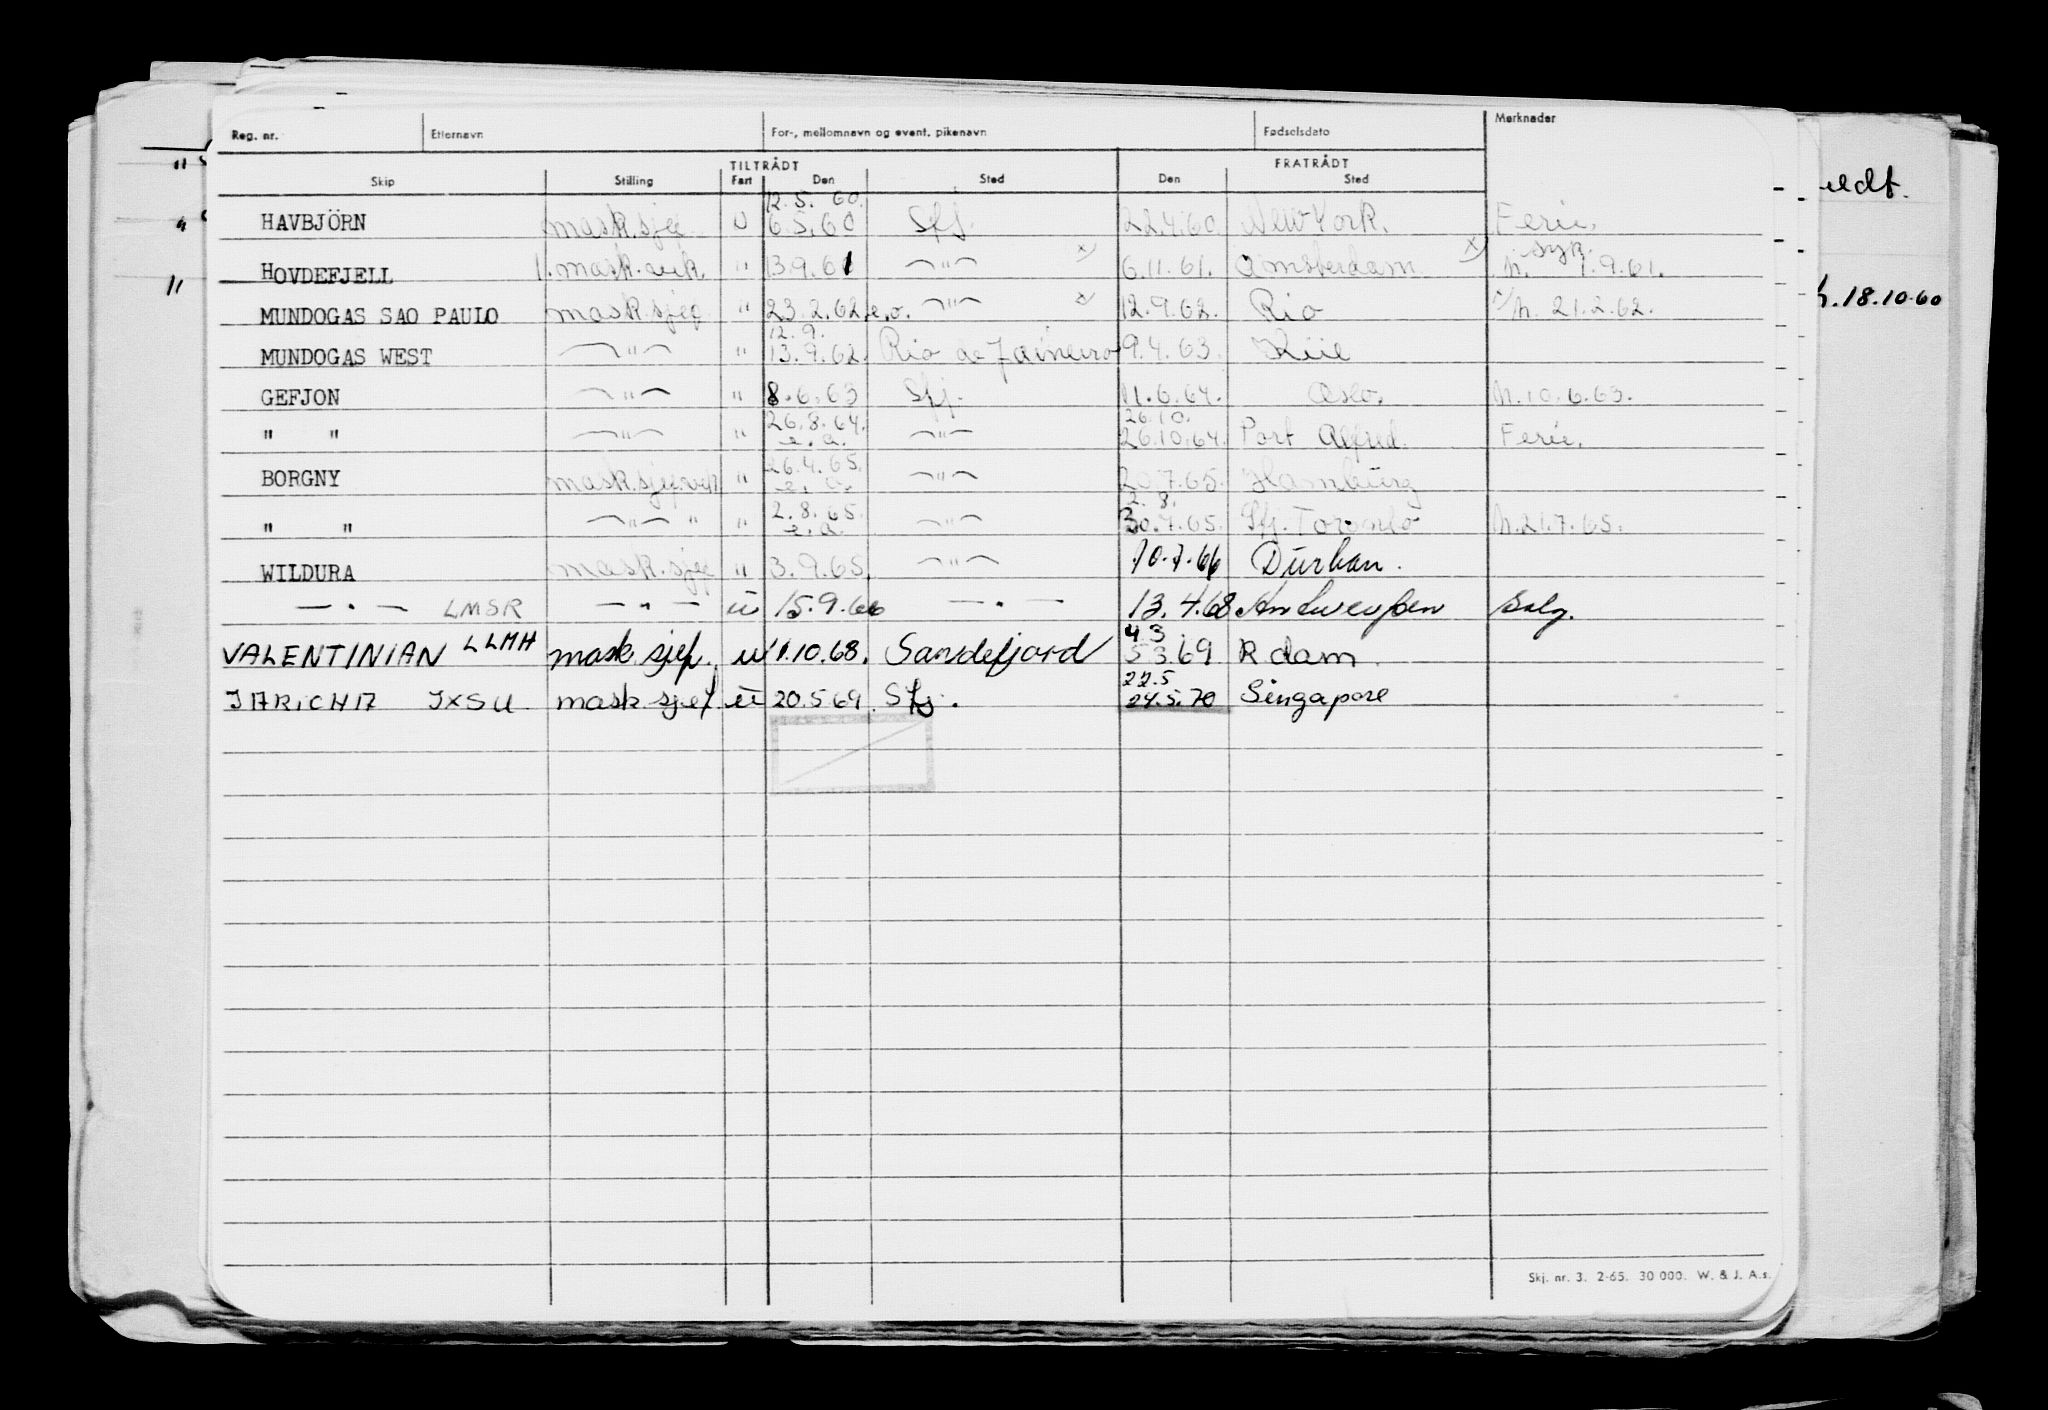 Reg. nr. Etternavn For-, mellomnavn og event. pikenavn Fødselsdato Merknader
TILTRÅDT FRATRÅDT
Skip Stilling Fart Den Sted Den Sted
12.5. 60.
HAVBJÖRN mask.sjef U 6.5.60 Sfj. 22.4.60 New York. Ferie.
syk.
HOVDEFJELL 1. mask. vik. " 13.9.61 — " — x) 6.11.61. Amsterdam x) h. 1.9.61.
MUNDOGAS SAO PAULO mask.sjef " 23.2.62 e.o. — " — x) 12.9.62. Rio x) h. 21.2.62.
12.9.
MUNDOGAS WEST — " — " 13.9.62. Rio de Janeiro 9.4.63.
GEFJON — " — " 8.6.63 Sfj. 11.6.64. Oslo. h.10.6.63.
26.8.64. 26.10.
" " — " — " e.a. — " — 26.10.64. Port Alfred. Ferie.
26.4.65.
BORGNY mask.sjef vik " e.a. — " — 20.7.65. Hamburg
2.8.65. 2.8.
" " — " — " " e.a. — " — 30.7.65. Sfj. Toronto h.21.7.65.
WILDURA mask.sjef " 3.9.65. — " — 10.7.66 Durban.
— " — LMSR — " — u 15.9.66 — " — 13.4.68 Antwerpen Salg.
4.3
VALENTINIAN LLMH mask sjef. u 11.10.68. Sandefjord 5 3.69 R dam
22.5
JARICHA JXSU mask sjef u 20.5 69 Sfj. 24.5.70 Singapore
eldt.
h. 18.10.60
Skj. nr. 3. 2-65. 30 000. W. & J. A.s.